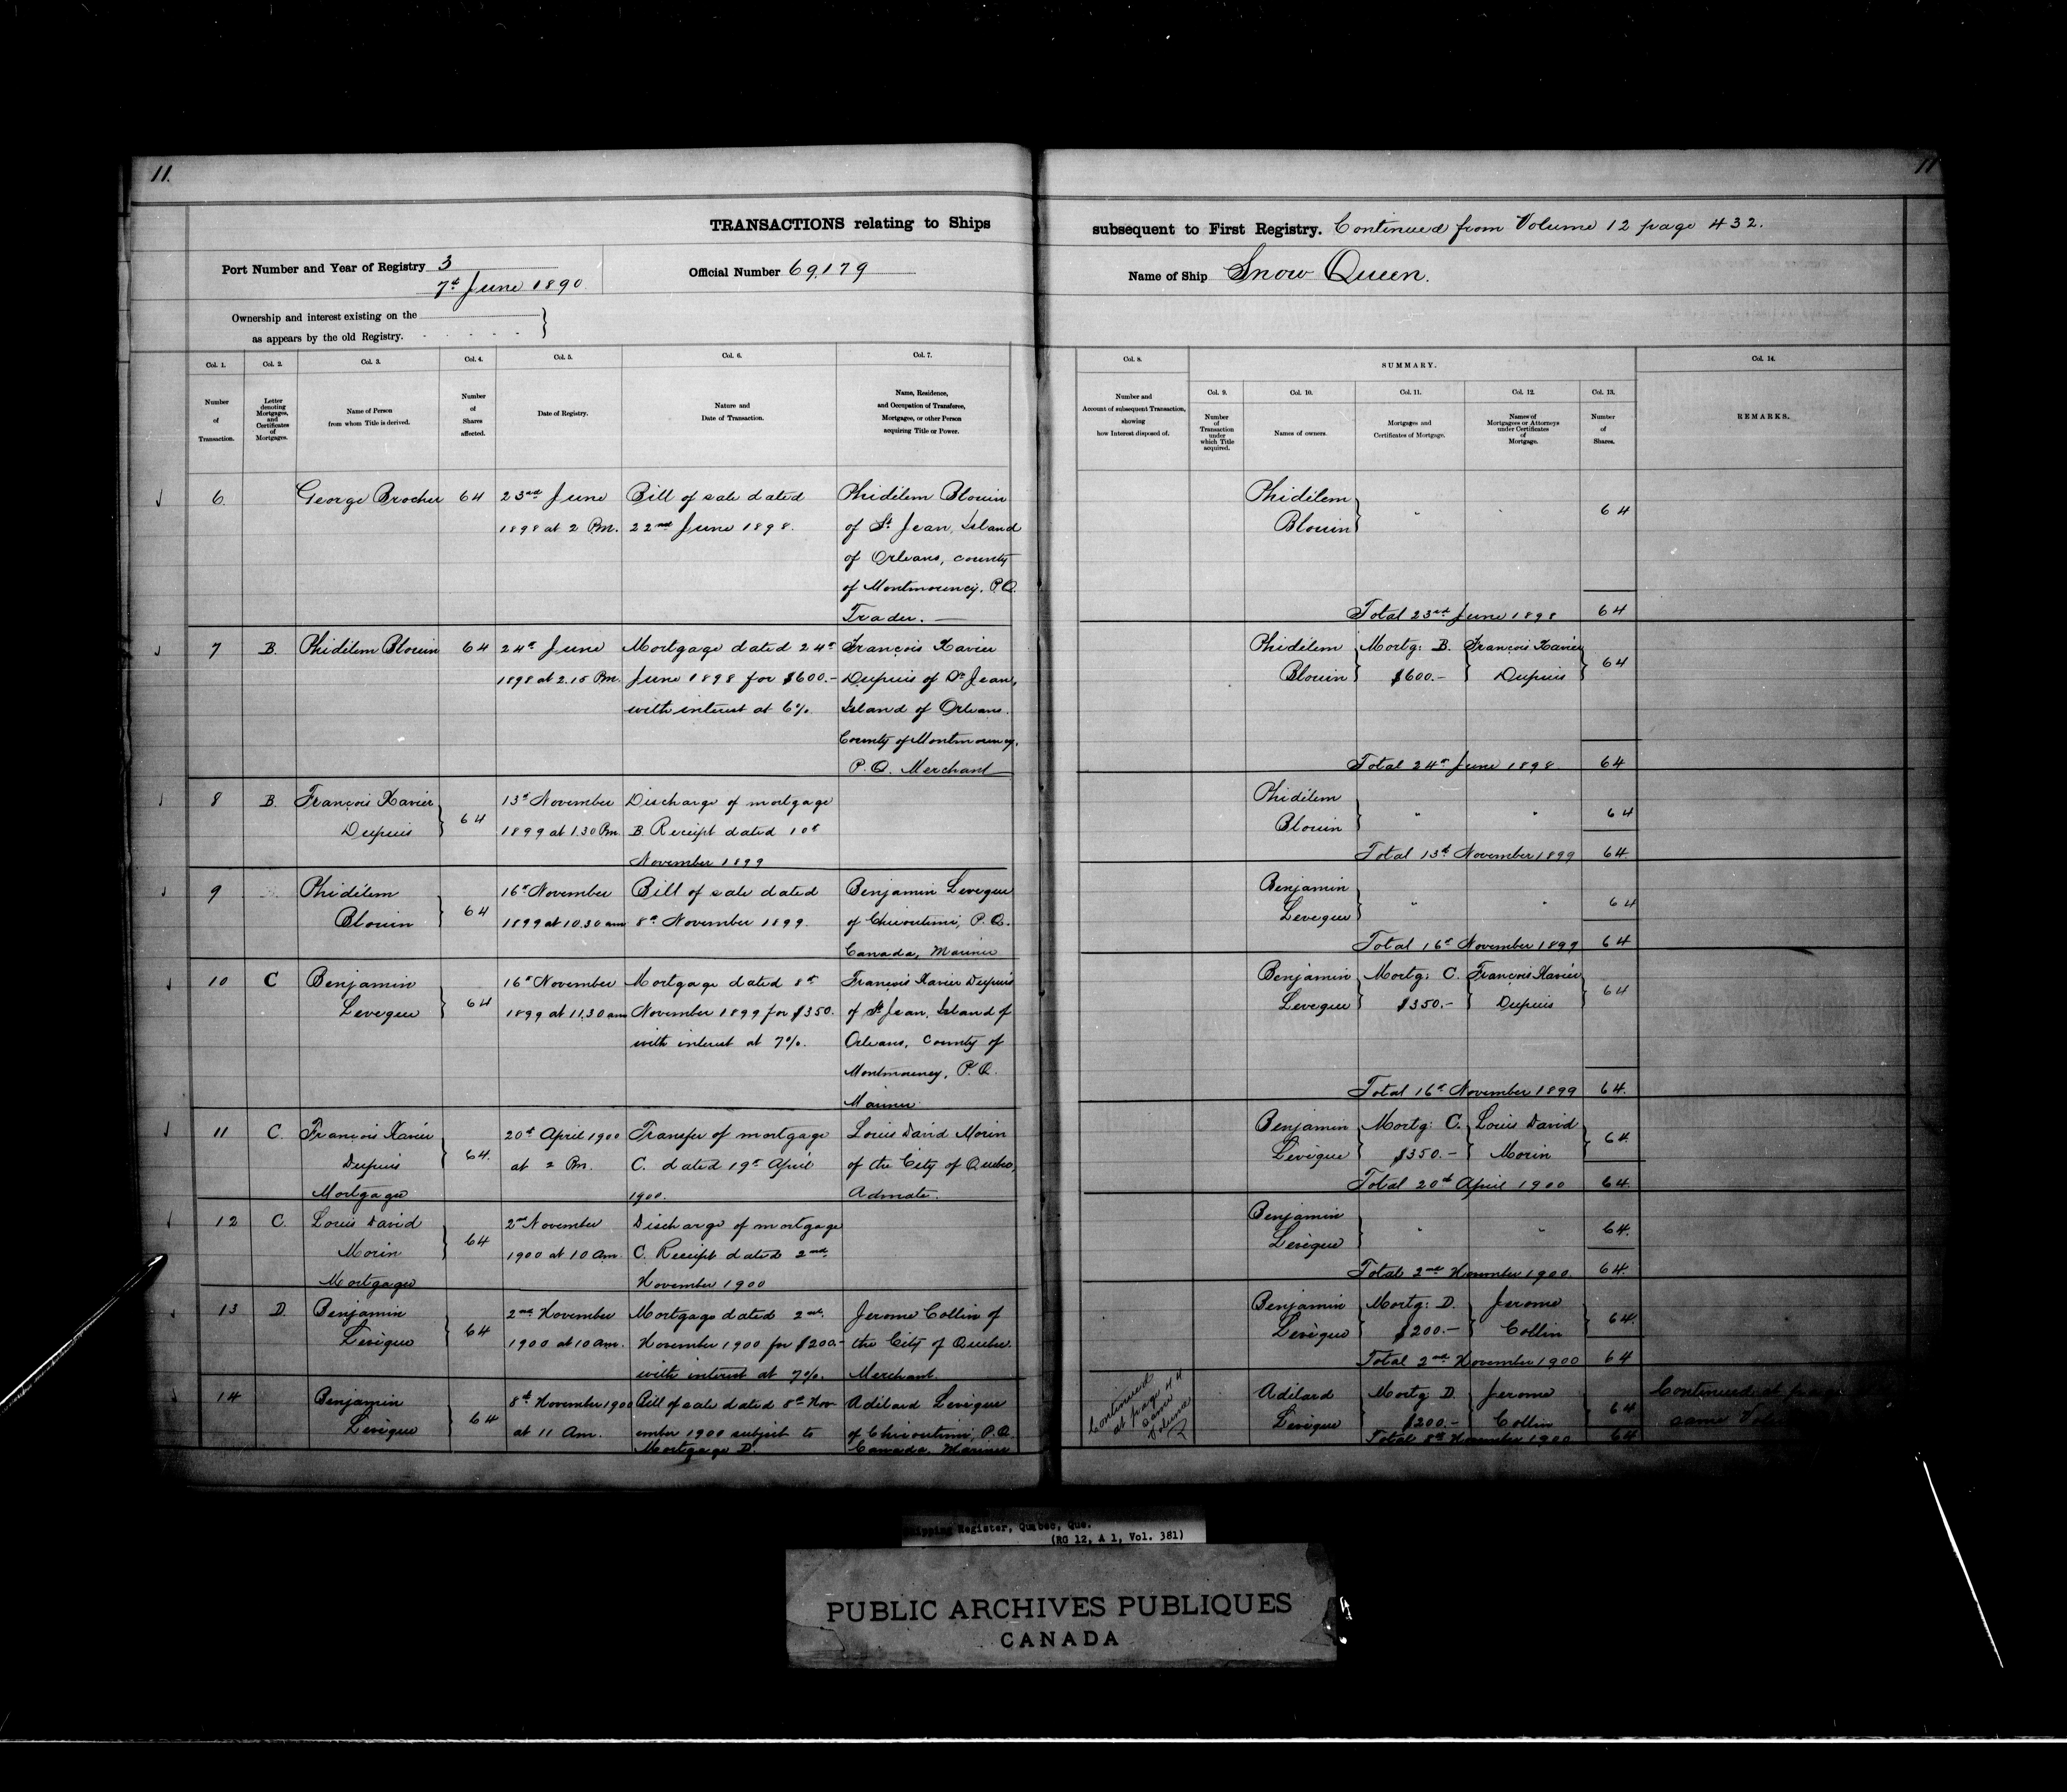 11.
11
TRANSACTIONS relating to Ships
subsequent to First Registry. Continued from Volume 12 page 432.
Port Number and Year of Registry 3
7th June 1890
Official Number 69,179
Name of Ship Snow Queen.
Ownership and interest existing on the
as appears by the old Registry.
Col. 1. Col. 2. Col. 3. Col. 4. Col. 5. Col. 6. Col. 7.
Number of Transaction.
Letter denoting Mortgages, and Certificates of Mortgages.
Name of Person from whom Title is derived.
Number of Shares affected.
Date of Registry.
Nature and Date of Transaction.
Name, Residence, and Occupation of Transferee, Mortgagee, or other Person acquiring Title or Power.
Col. 8. SUMMARY. Col. 14.
Col. 9. Col. 10. Col. 11. Col. 12. Col. 13.
Number and Account of subsequent Transaction, showing how Interest disposed of.
Number of Transaction under which Title acquired.
Names of owners.
Mortgages and Certificates of Mortgage.
Names of Mortgagees or Attorneys under Certificates of Mortgage.
Number of Shares.
REMARKS.
6 George Brocher 64 23rd June Bill of sale dated Phidélem Blouin
1898 at 2 Pm. 22nd June 1898. of St Jean, Island
of Orleans, county
of Montmorency. P.Q.
Trader.
Phidélem " " 64
Blouin
Total 23rd June 1898 64
7 B. Phidélem Blouin 64 24th June Mortgage dated 24th François Xavier
1898 at 2.15 Pm. June 1898 for $600.- Dupuis of St Jean,
with interest at 6%. Island of Orleans.
County of Montmorency,
P.Q. Merchant
Phidélem Mortg: B. François Xavier 64
Blouin $600.- Dupuis
Total 24th June 1898 64
8 B. François Xavier 64 13th November Discharge of mortgage
Dupuis 1899 at 1.30 Pm. B Receipt dated 10th
November 1899
Phidélem " " 64
Blouin
Total 13th November 1899 64.
9 Phidélem 64 16th November Bill of sale dated Benjamin Leveque
Blouin 1899 at 10.30 am 8th November 1899. of Chicoutimi, P.Q.
Canada, Mariner
Benjamin " " 64
Leveque
Total 16th November 1899 64
10 C Benjamin 64 16th November Mortgage dated 8th François Xavier Dupuis
Leveque 1899 at 11.30 am November 1899 for $350. of St Jean, Island of
with interest at 7%. Orleans, County of
Montmorency, P.Q.
Mariner
Benjamin Mortg: C. François Xavier 64
Leveque $350.- Dupuis
Total 16th November 1899 64.
11 C. François Xavier 64. 20th April 1900 Transfer of mortgage Louis David Morin
Dupuis at 2 Pm. C. dated 19th April of the City of Quebec,
Mortgagee 1900. Advocate.
Benjamin Mortg: C. Louis David 64.
Levèque $350.- Morin
Total 20th April 1900 64.
12 C. Louis David 64 2nd November Discharge of mortgage
Morin 1900 at 10 am. C. Receipt dated 2nd
Mortgagee November 1900
Benjamin " " 64.
Levèque
Total 2nd November 1900. 64.
13 D. Benjamin 64 2nd November Mortgage dated 2nd Jerome Collin of
Levèque 1900 at 10 am. November 1900 for $200.- the City of Quebec.
with interest at 7%. Merchant.
Benjamin Mortg: D. Jerome 64.
Levèque $200.- Collin
Total 2nd November 1900 64
14 Benjamin 64 8th November 1900 Bill of sale dated 8th Nov- Adélard Levèque
Levèque at 11 Am. ember 1900 subject to of Chicoutimi, P.Q.
Mortgage D. Canada, Mariner
Continued
at page 44
same
Volume
Adélard Mortg D. Jerome 64 Continued at page
Levèque $200.- Collin same
Total 8th November 1900 64
Shipping Register, Quebec, Que.
(RG 12, A 1, Vol. 381)
PUBLIC ARCHIVES PUBLIQUES
CANADA